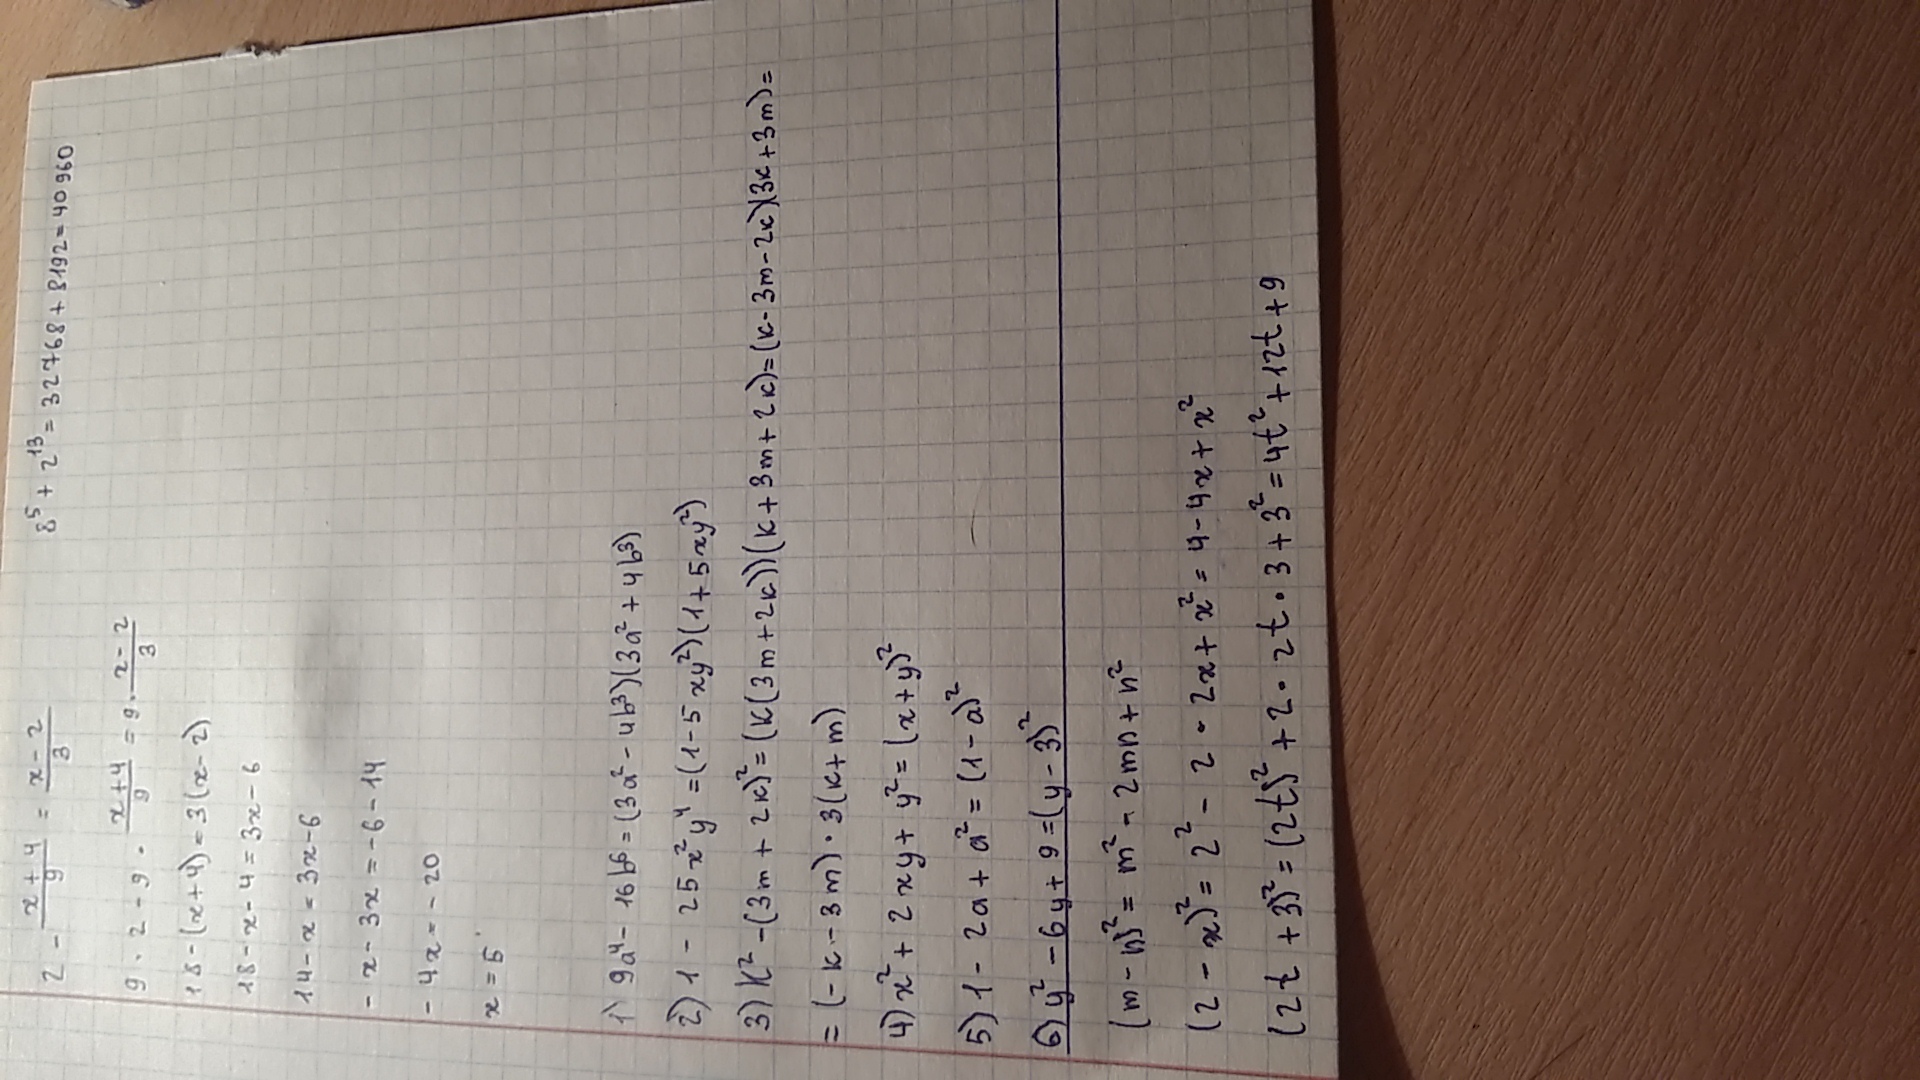 2 - \frac{x+4}{9} = \frac{x-2}{3}
8⁵ + 2¹³ = 32768 + 8192 = 40960
9 · 2 - 9 · \frac{x+4}{9} = 9 · \frac{x-2}{3}
18 - (x+4) = 3(x-2)
18 - x - 4 = 3x - 6
14 - x = 3x - 6
- x - 3x = - 6 - 14
- 4x = - 20
x = 5
1) 9a⁴ - 16b⁶ = (3a² - 4b³)(3a² + 4b³)
2) 1 - 25x²y⁴ = (1 - 5xy²)(1 + 5xy²)
3) k² - (3m + 2k)² = (k(3m + 2k))(k + 3m + 2k) = (k - 3m - 2k)(3k + 3m) =
= (-k - 3m) · 3(k + m)
4) x² + 2xy + y² = (x + y)²
5) 1 - 2a + a² = (1 - a)²
6) y² - 6y + 9 = (y - 3)²
(m - n)² = m² - 2mn + n²
(2 - x)² = 2² - 2 · 2x + x² = 4 - 4x + x²
(2t + 3)² = (2t)² + 2 · 2t · 3 + 3² = 4t² + 12t + 9